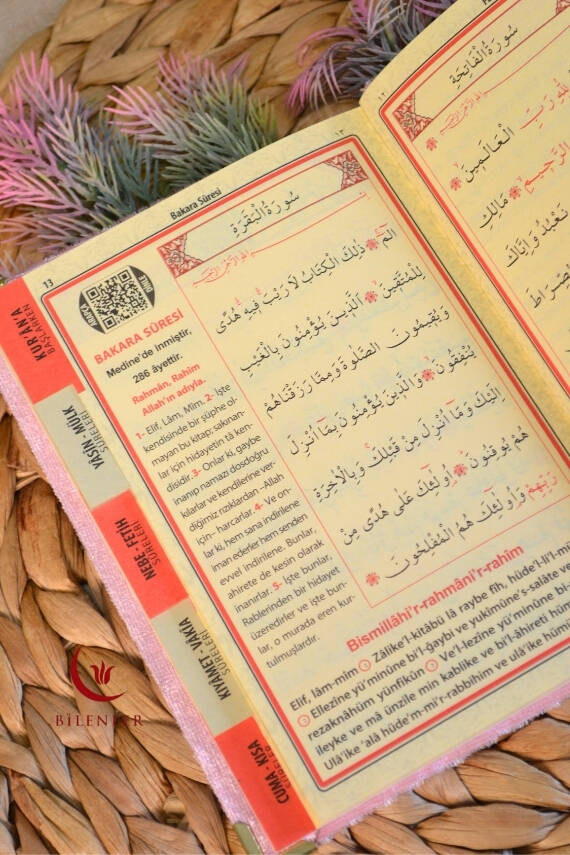 Bakara Sûresi
١٣
13
DİNLE
KUR'AN'A
BAŞLARKEN
YASİN-MÜLK
SÛRELERİ
NEBE - FETİH
SÛRELERİ
KIYAMET - VAKIA
SÛRELERİ
CUMA - KISA
SÛRELER
BAKARA SÛRESİ
Medine'de inmiştir,
286 âyettir.
Rahmân, Rahîm
Allah'ın adıyla.
1- Elif, Lâm, Mîm. 2- İşte
kendisinde bir şüphe ol-
mayan bu kitap; sakınan-
lar için hidayetin tâ ken-
disidir. 3- Onlar ki, gaybe
inanıp namazı dosdoğru
kılarlar ve kendilerine ver-
diğimiz rızıklardan –Allah
için– harcarlar. 4- Ve on-
lar ki, hem sana indirilene
iman ederler hem senden
evvel indirilene. Bunlar,
ahirete de kesin olarak
inanırlar. 5- İşte bunlar,
Rablerinden bir hidayet
üzeredirler ve işte bun-
lar, o murada eren kur-
tulmuşlardır.
سُورَةُ الْبَقَرَةِ
الٓمٓ ذٰلِكَ الْكِتَابُ لَا رَيْبَ فِيهِ هُدًى
لِلْمُتَّقِينَ الَّذِينَ يُؤْمِنُونَ بِالْغَيْبِ
وَيُقِيمُونَ الصَّلٰوةَ وَمِمَّا رَزَقْنَاهُمْ
يُنْفِقُونَ وَالَّذِينَ يُؤْمِنُونَ بِمَٓا اُنْزِلَ
اِلَيْكَ وَمَٓا اُنْزِلَ مِنْ قَبْلِكَ وَبِالْاٰخِرَةِ
هُمْ يُوقِنُونَ اُو۬لٰٓئِكَ عَلٰى هُدًى مِنْ
رَبِّهِمْ وَاُو۬لٰٓئِكَ هُمُ الْمُفْلِحُونَ
Bismillâhi'r-rahmâni'r-rahîm
Elif, lâm-mîm 1 Zâlike'l-kitâbü lâ raybe fîh, hüde'l-li'l-mü
2 Ellezîne yü'minûne bi'l-ğaybi ve yukîmûne's-salâte ve
rezaknâhüm yünfikûn 3 Ve'l-lezîne yü'minûne bi
ileyke ve mâ ünzile min kablike ve bi'l-âhireti hüm
Ulâ'ike 'alâ hüde'm-mi'r-rabbihim ve ulâ'ike hümü
١٢
سُورَةُ الْفَاتِحَةِ
لِلّٰهِ رَبِّ الْعَالَمِينَ
الرَّحِيمِ مَالِكِ
نَعْبُدُ وَاِيَّاكَ
BİLENLER